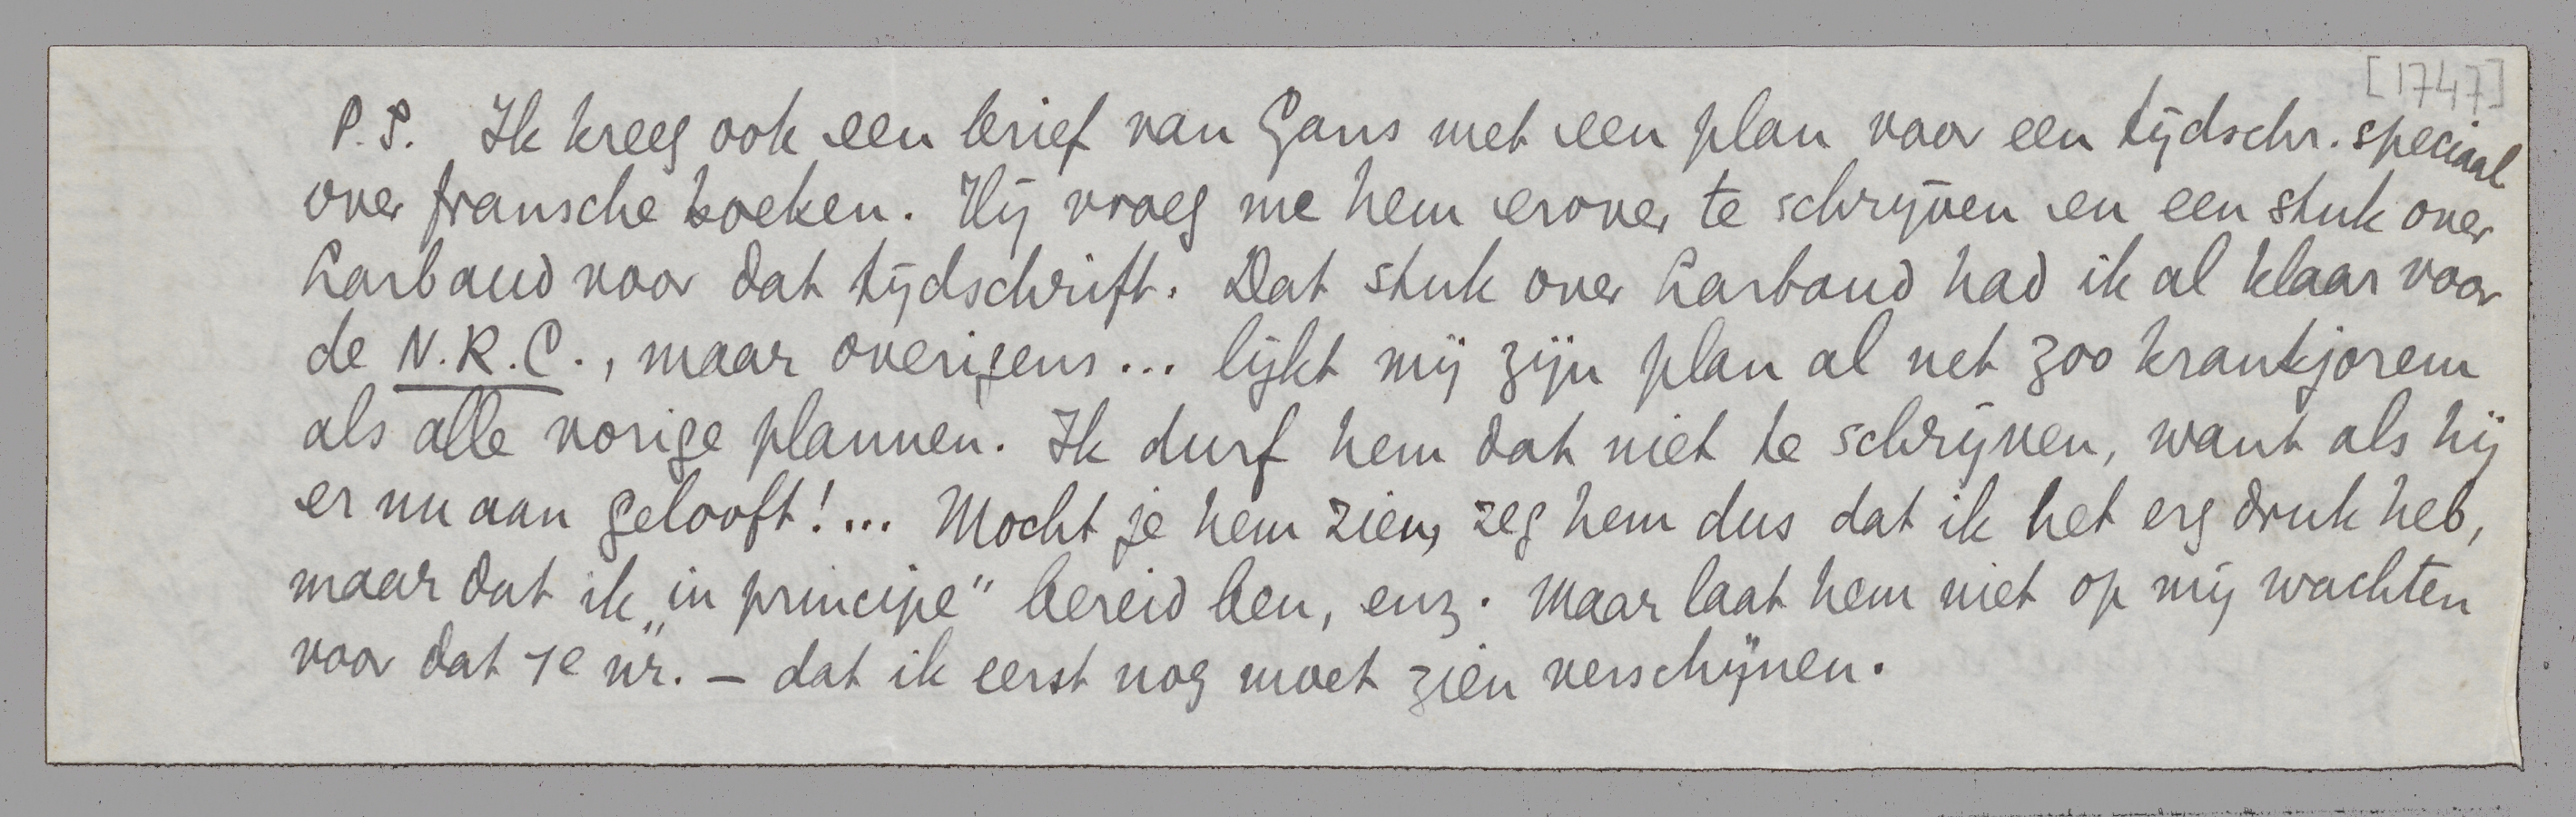 [1747]
P.S. Ik kreeg ook een brief van Gans met een plan voor een tijdschr. speciaal
over fransche boeken. Hij vroeg me hem erover te schrijven en een stuk over
Larbaud voor dat tijdschrift. Dat stuk over Larbaud had ik al klaar voor
de N.R.C., maar overigens... lijkt mij zijn plan al net zoo krankjorem
als alle vorige plannen. Ik durf hem dat niet te schrijven, want als hij
er nu aan gelooft!... Mocht je hem zien, zeg hem dus dat ik het erg druk heb,
maar dat ik „in principe" bereid ben, enz. Maar laat hem niet op mij wachten
voor dat 1e nr. – dat ik eerst nog moet zien verschijnen.